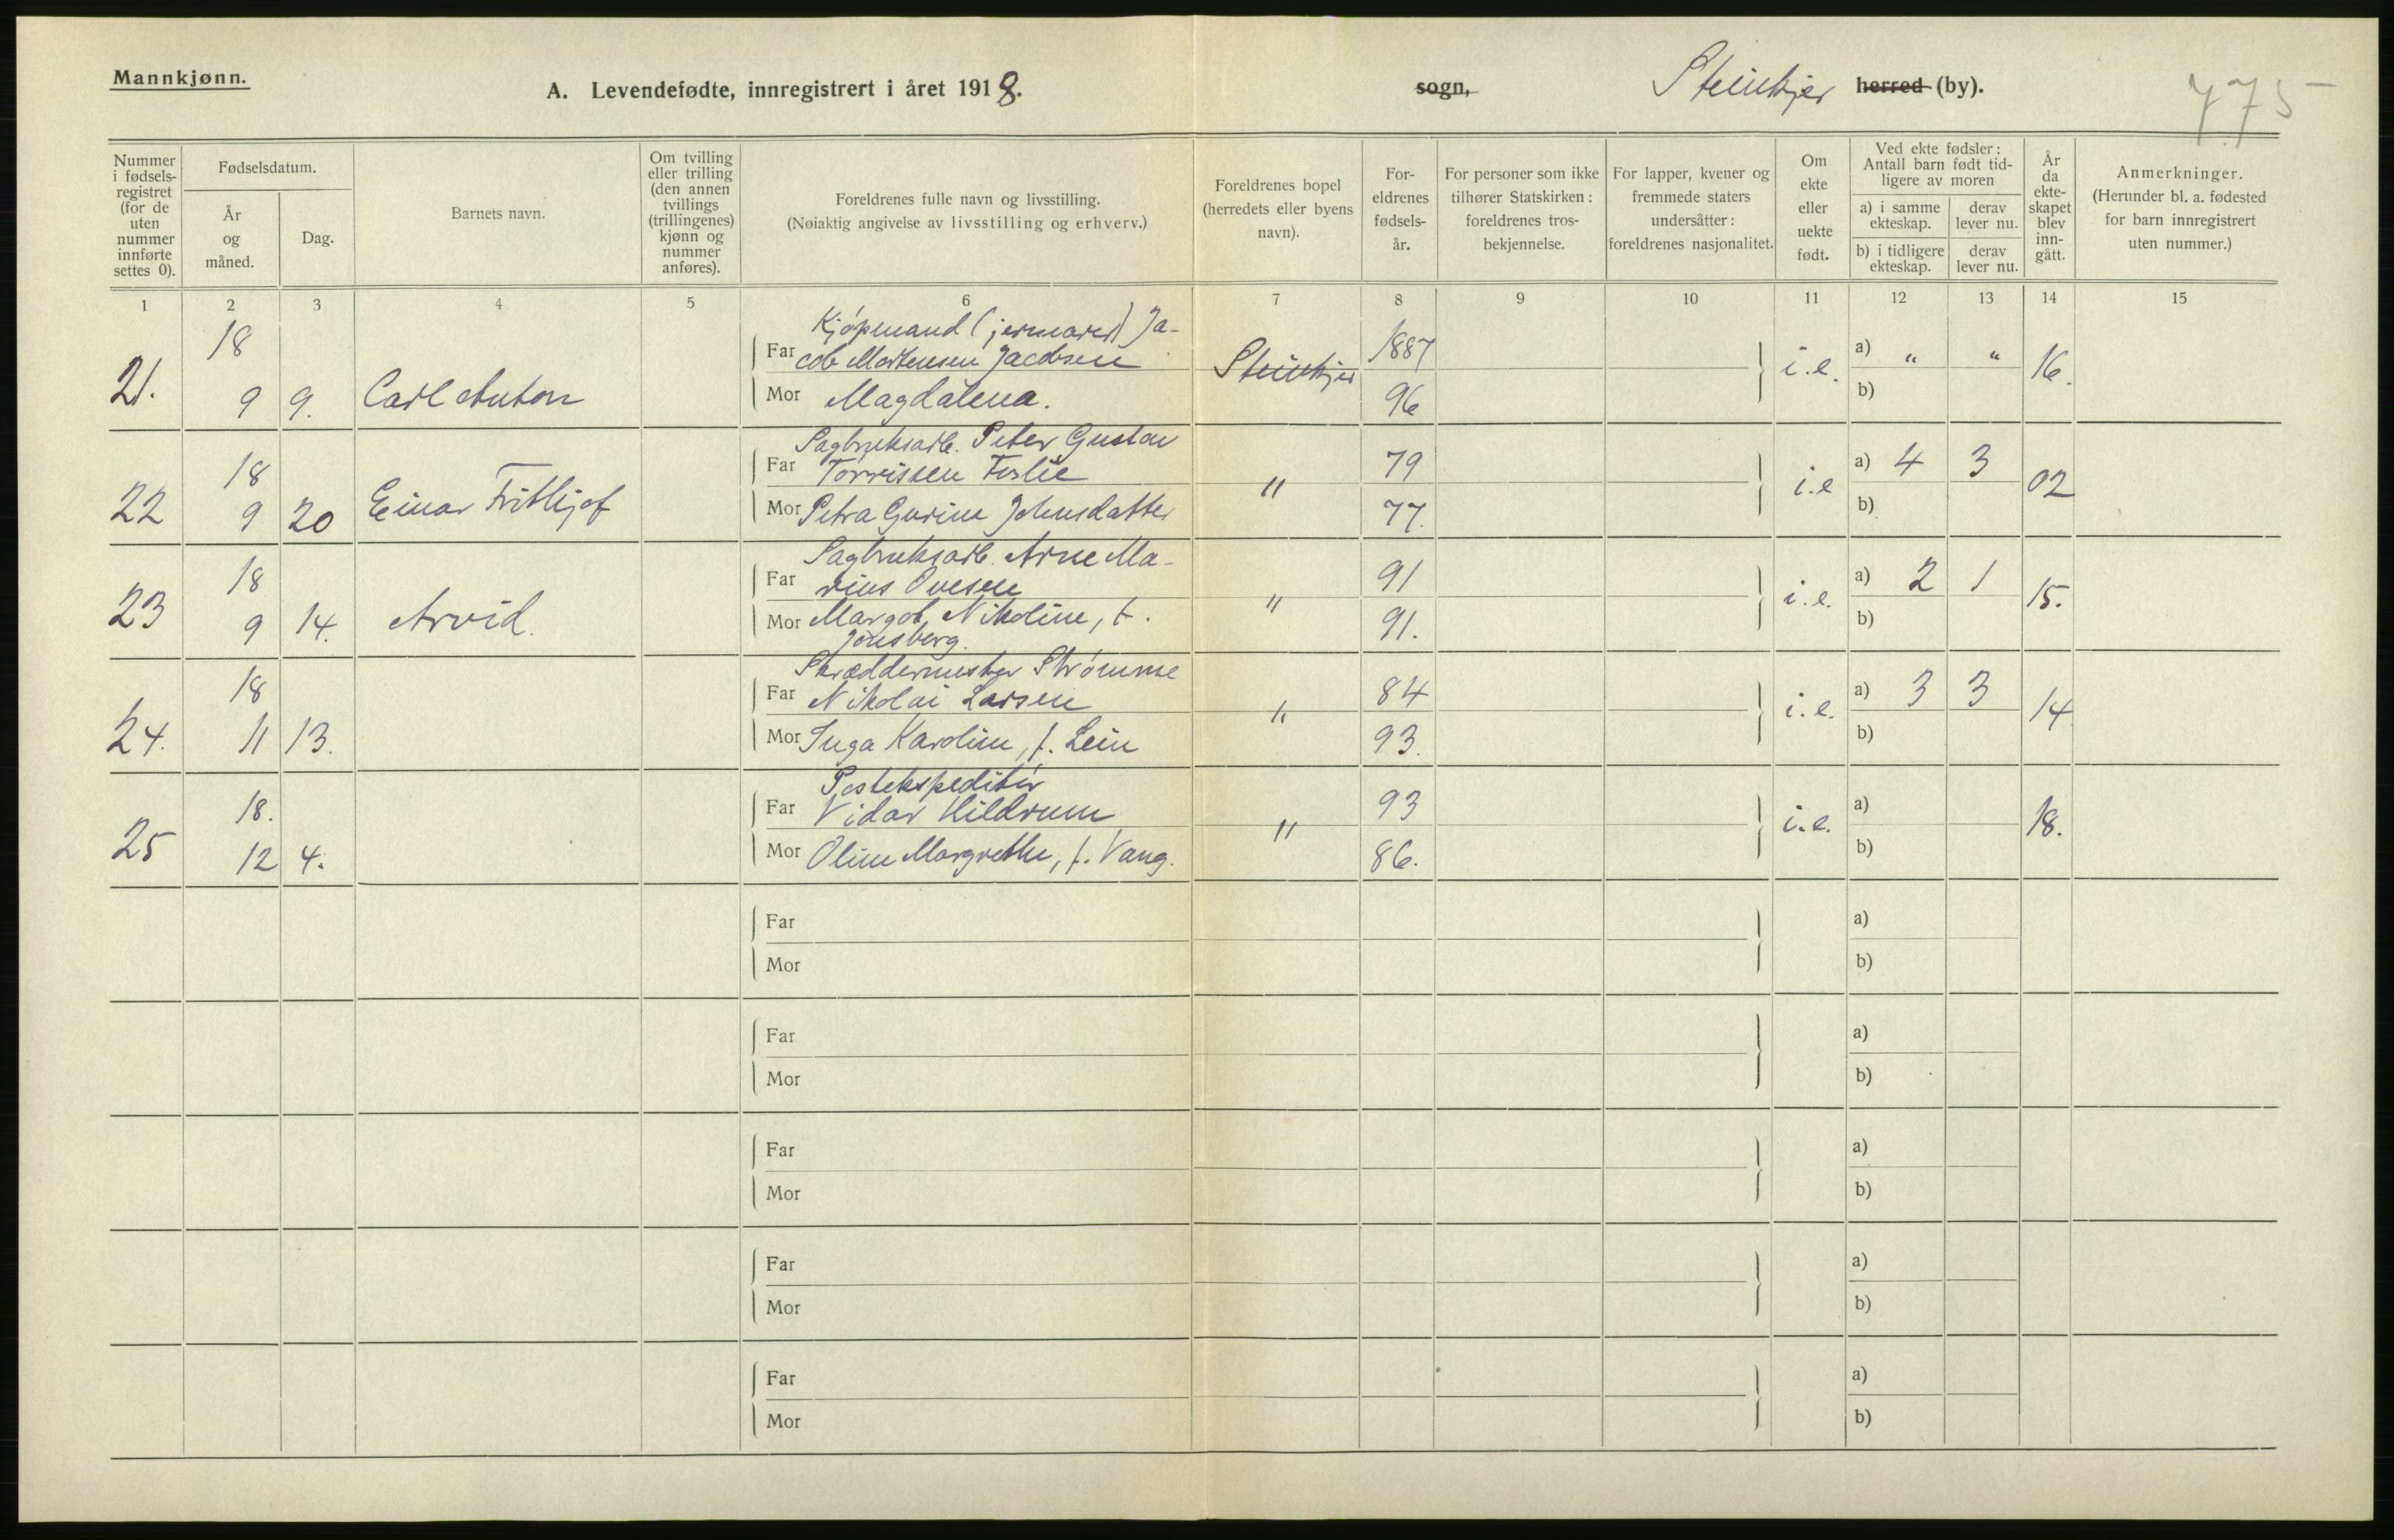 Mannkjønn.
A. Levendefødte, innregistrert i året 1918.
sogn,
Steinkjer herred (by).
775
Nummer i fødsels-registret (for de uten nummer innførte settes 0).
Fødselsdatum.
År og måned.
Dag.
Barnets navn.
Om tvilling eller trilling (den annen tvillings (trillingenes) kjønn og nummer anføres).
Foreldrenes fulle navn og livsstilling.
(Nøiaktig angivelse av livsstilling og erhverv.)
Foreldrenes bopel (herredets eller byens navn).
For-eldrenes fødsels-år.
For personer som ikke tilhører Statskirken: foreldrenes tros-bekjennelse.
For lapper, kvener og fremmede staters undersåtter: foreldrenes nasjonalitet.
Om ekte eller uekte født.
Ved ekte fødsler: Antall barn født tid-ligere av moren
a) i samme ekteskap.
derav lever nu.
b) i tidligere ekteskap.
derav lever nu.
År da ekte-skapet blev inn-gått.
Anmerkninger.
(Herunder bl. a. fødested for barn innregistrert uten nummer.)
1 2 3 4 5 6 7 8 9 10 11 12 13 14 15
Kjøpmand (jernvarer) Ja-
18 Far cob Mortensen Jacobsen Steinkjer 1887 i.e. a) " " 16.
21. 9 9. Carl Anton Mor Magdalena. 96 b)
Sagbruksarb. Peter Gustav
18 Far Torrissen Foslie " 79 i.e a) 4 3 02
22 9 20 Einar Frithjof Mor Petra Gurine Johnsdatter 77. b)
Sagbruksarb. Arne Ma-
18 Far rius Ovesen " 91 i.e. a) 2 1 15.
23 9 14. Arvid. Mor Margot Nikoline, f. 91. b)
Jønsberg.
Skræddermester Strømme
18 Far Nikolai Larsen " 84 i.e. a) 3 3 14
24. 11 13. Mor Inga Karoline, f. Lein 93. b)
Postekspeditør
18. Far Vidar Hildrum " 93 i.e. a) 18.
25 12 4. Mor Oline Margrethe, f. Vang. 86. b)
Far a)
Mor b)
Far a)
Mor b)
Far a)
Mor b)
Far a)
Mor b)
Far a)
Mor b)